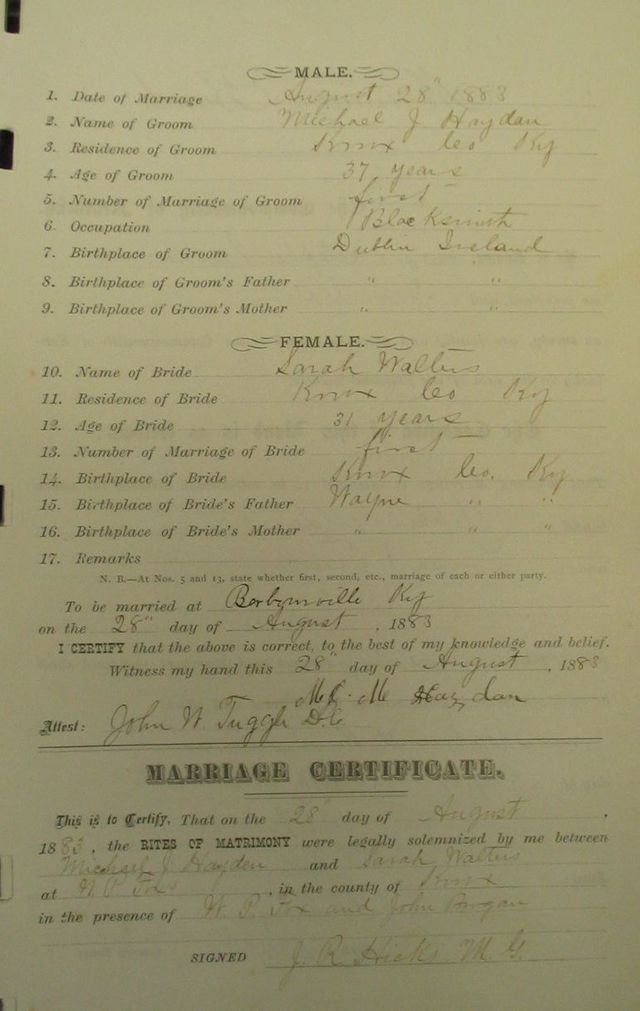 MALE.
1. Date of Marriage August 28" 1883
2. Name of Groom Michael J Haydan
3. Residence of Groom Knox Co Ky
4. Age of Groom 37 years
5. Number of Marriage of Groom first
6. Occupation Blacksmith
7. Birthplace of Groom Dublin Ireland
8. Birthplace of Groom's Father " "
9. Birthplace of Groom's Mother " "
FEMALE.
10. Name of Bride Sarah Walters
11. Residence of Bride Knox Co Ky
12. Age of Bride 31 years
13. Number of Marriage of Bride first
14. Birthplace of Bride Knox Co. Ky
15. Birthplace of Bride's Father Wayne " "
16. Birthplace of Bride's Mother " " "
17. Remarks
N. B.—At Nos. 5 and 13, state whether first, second, etc., marriage of each or either party.
To be married at Barbourville Ky
on the 28" day of August, 1883
I CERTIFY that the above is correct, to the best of my knowledge and belief.
Witness my hand this 28" day of August, 1883
Haydan
Attest: John W. Tuggle D.C.
MARRIAGE CERTIFICATE.
This is to Certify, That on the 28" day of August,
1883, the RITES OF MATRIMONY were legally solemnized by me between
Michael J Hayden and Sarah Walters
at W. P. Fox's, in the county of Knox
in the presence of W. P. Fox and John
SIGNED J. R. Hicks M. G.